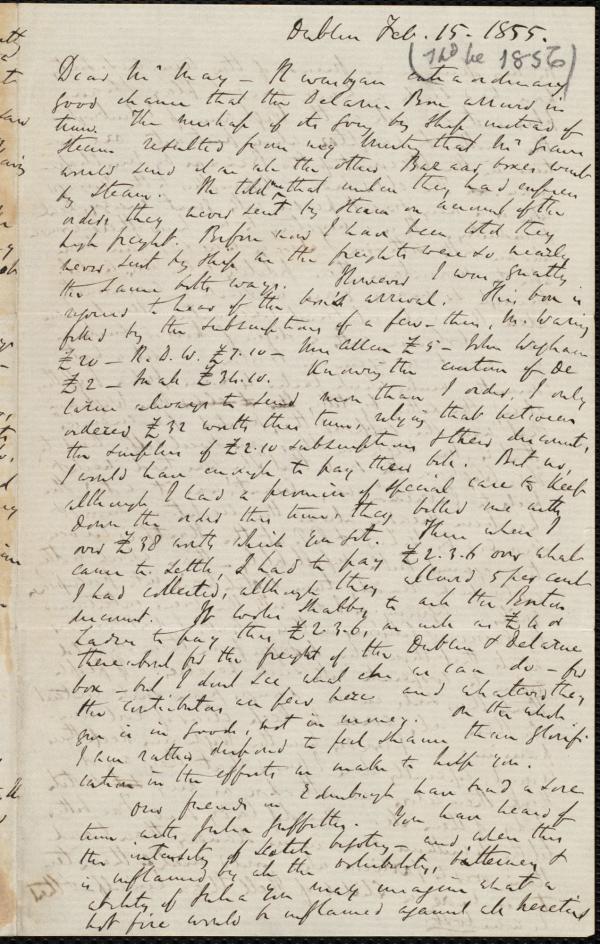 Dublin Feb. 15. 1855.
(Shd be 1856)
Dear Mr May — It was by an extraordinary
good chance that the Delarue Box arrived in
time. The mishap of its going by Ship instead of
Steam resulted from my trusting that Mr Green
would send it as all the other Bazaar boxes went
by Steam. He told me that unless they had express
orders they never sent by Steam on account of the
high freight. Before now I have been told they
never sent by Ship as the freights were so nearly
the same both ways. However I was greatly
rejoiced to hear of the box's arrival. This box is
filled by the subscriptions of a few — thus, M. Waring
£20 — R. D. W. £7.10 — Mrs Allen £5 — John Wigham
£2 — In all £34.10. Knowing the custom of De
larue always to send more than I order, I only
ordered £32 worth this time, relying that between
the surplus of £2.10 subscriptions & their discount,
I would have enough to pay their bill. But no,
although I had a promise of special care to keep
down the order this time, they billed me with
over £38 worth which you got. Then when I
came to settle, I had to pay £2.3.6 over what
I had collected, although they allowed 5 per cent
discount. It looks shabby to ask the Boston
Ladies to pay this £2.3.6, as well as £4 or
thereabout for the freight of the Dublin & Delarue
box — but I dont see what else we can do — for
the contributors are few here and whatever they
give is in goods, not in money. On the whole
I am rather disposed to feel shame than glorifi-
cation in the efforts we make to help you.
Our friends in Edinburgh have had a sore
time with Julia Griffiths. You have heard of
the intensity of Scotch bigotry — and when this
is inflamed by all the volubility, bitterness &
ability of Julia you may imagine what a
hot fire would be inflamed against all heretics